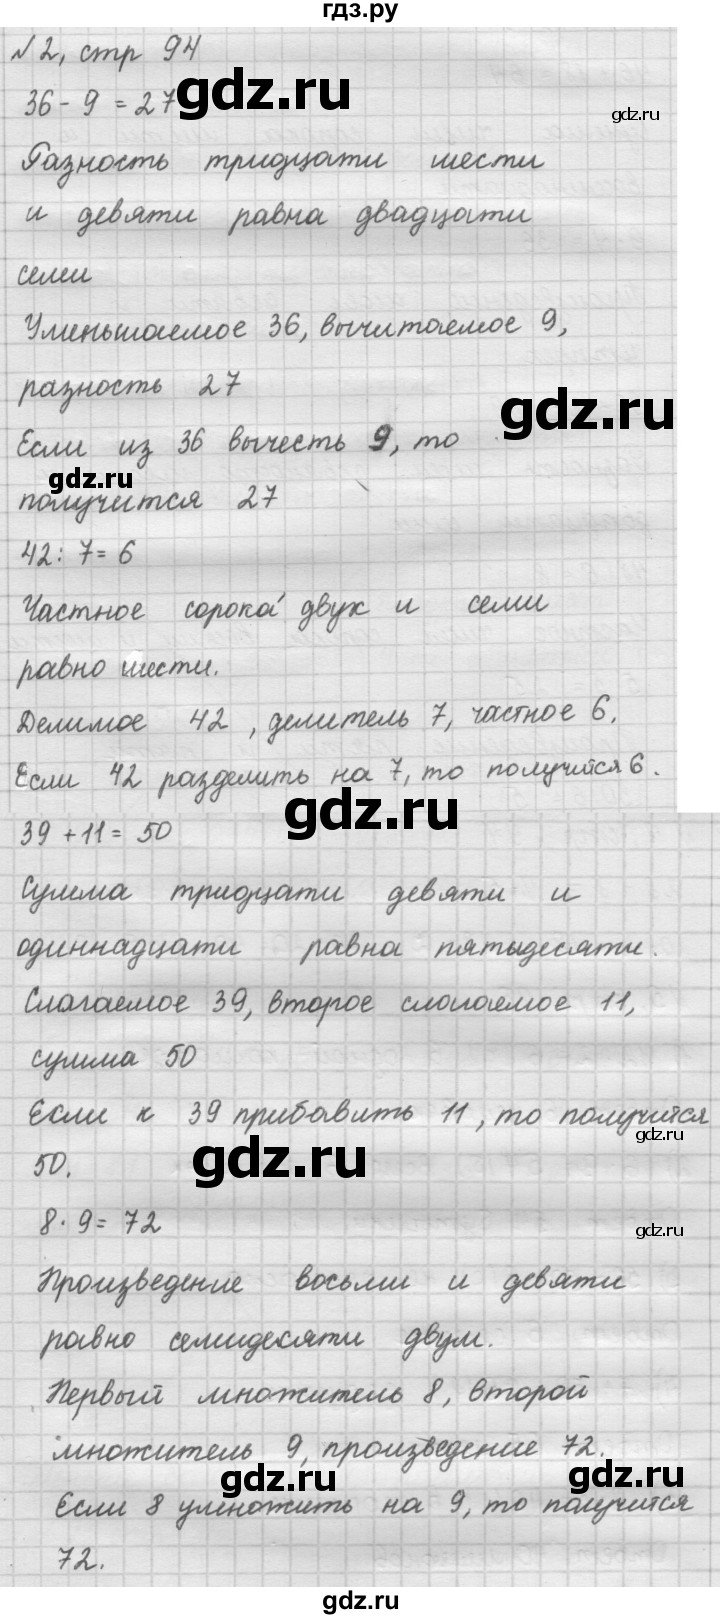 гдз.ру
№2, стр 94
36 - 9 = 27
gdz.ru
Разность тридцати шести
и девяти равна двадцати
семи
Уменьшаемое 36, вычитаемое 9,
разность 27
gdz.ru
Если из 36 вычесть 9, то
gdz.ru
получится 27
42 : 7 = 6
Частное сорока двух и семи
равно шести.
Делимое 42, делитель 7, частное 6.
Если 42 разделить на 7, то получится 6.
gdz.ru
39 + 11 = 50
Сумма тридцати девяти и
одиннадцати равна пятидесяти.
Слагаемое 39, второе слагаемое 11,
сумма 50
Если к 39 прибавить 11, то получится
gdz.ru
50.
gdz.ru
8 · 9 = 72
gdz.ru
Произведение восьми и девяти
равно семидесяти двум.
Первый множитель 8, второй
множитель 9, произведение 72.
gdz.ru
gdz.ru
Если 8 умножить на 9, то получится
72.
gdz.ru